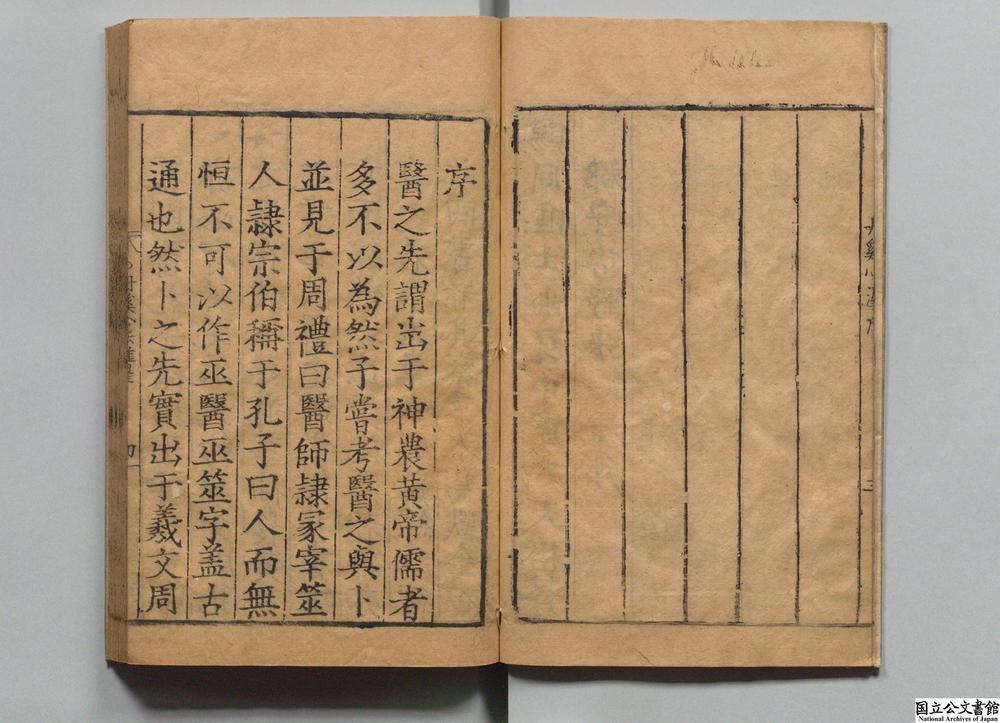 序
醫之先謂出于神農黃帝儒者
多不以為然予嘗考醫之與卜
並見于周禮曰醫師隷冢宰筮
人隷宗伯稱于孔子曰人而無
恒不可以作巫醫巫筮字盖古
通也然卜之先實出于羲文周
国立公文書館
National Archives of Japan